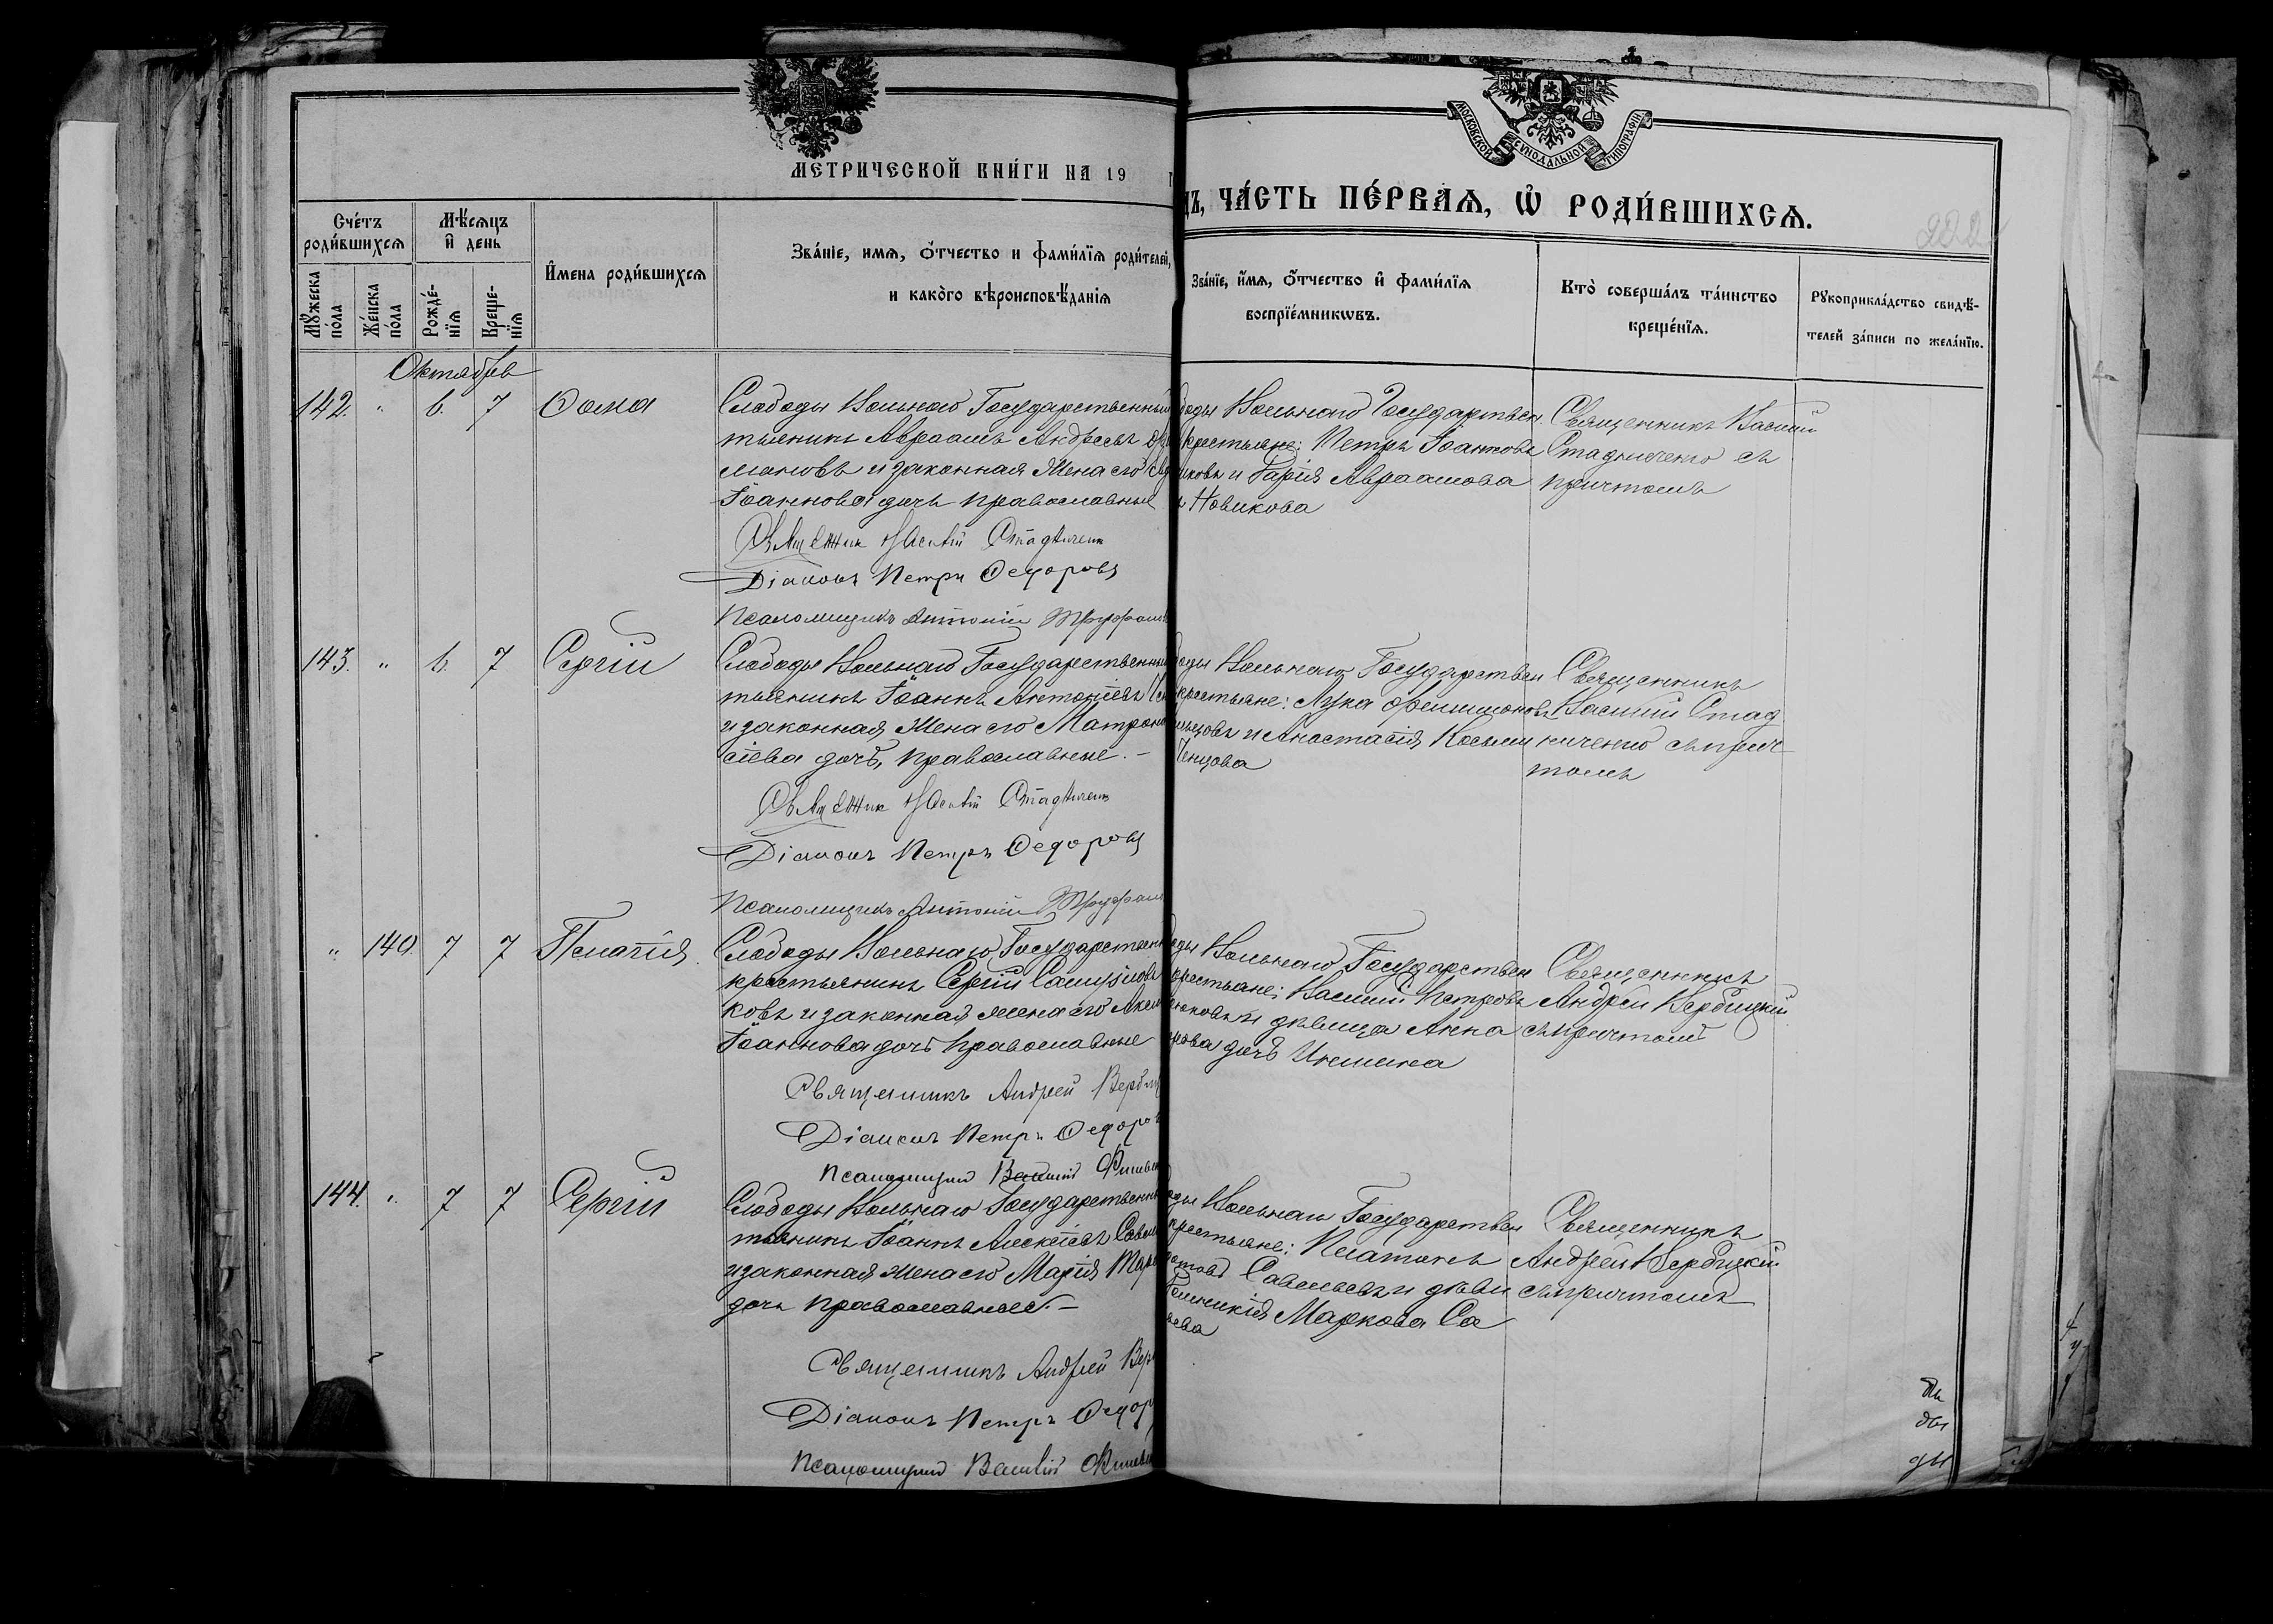 МЕТРИЧЕСКОЙ КНИ́ГИ НА 19
ДЪ, ЧА́СТЬ ПЕ́РВАѦ, Ѡ РОДИ́ВШИХСѦ.
МОСКОВСКОЙ СѴНОДАЛЬНОЙ ТИПОГРАФІИ
Сче́тъ роди́вшихсѧ
Мꙋ́жеска по́ла
Же́нска по́ла
Мѣ́сѧцъ и день
Рожде́нїѧ
Креще́нїѧ
Имена роди́вшихсѧ
Зва́нїе, имѧ, о́тчество и фами́лїѧ роди́телей,
и како́го вѣроисповѣ́данїѧ
Зва́нїе, и́мѧ, о́тчество и фами́лїѧ
воспрїе́мникѡвъ.
Кто̀ соверша́лъ та́инство
креще́нїѧ.
Рꙋкоприкла́дство свидѣ́-
телей за́писи по жела́нїю.
Октябрь
142. " 6. 7 Ѳома
Слободы Вольнаго Государственный
тьянинъ Авраамъ Андреевъ
мановъ и законная жена его
Іоаннова дочь православные
Священник Василій Стадниченко
Діаконъ Петръ Ѳедоровъ
Псаломщикъ Антоній
боды Вольнаго Государствен.
крестьяне: Петръ Іоанновъ
и Дарія Авраамова
Новикова
Священникъ Василій
Стадниченко съ
причтомъ
143. " 6. 7 Сергій
Слободы Вольнаго Государственный
тьянинъ Іоаннъ Антоніевъ
и законная жена его Матрона
сіева дочь, православные. –
Священник Василій Стадниченко
Діаконъ Петръ Ѳедоровъ
Псаломщикъ Антоній
боды Вольнаго Государствен
крестьяне: Лука Филимоновъ
и Анастасія Косьми
Ченцова
Священникъ
Василій Стад
ниченко съ прич
томъ
" 140 7 7 Пелагія
Слободы Вольнаго Государствен
крестьянинъ Сергій
ковъ и законная жена его
Іоаннова дочь православные
Священникъ Андрей Верб
Діаконъ Петръ Ѳедоров
Псаломщикъ Василій
оды Вольнаго Государствен
крестьяне: Василій Петровъ
и дѣвица Анна
дочь Икшина
Священникъ
Андрей Вербицкій
съ причтомъ
144. " 7 7 Сергій
Слободы Вольнаго Государственный
тьянинъ Іоаннъ Алексіевъ
и законная жена его Марія
дочь православные. –
Священникъ Андрей Вер
Діаконъ Петръ Ѳедор
Псаломщикъ Василій
оды Вольнаго Государствен
крестьяне: Платонъ
Савельевъ и дѣви
Маркова Са
ева
Священникъ
Андрей Вербицкій
съ причтомъ